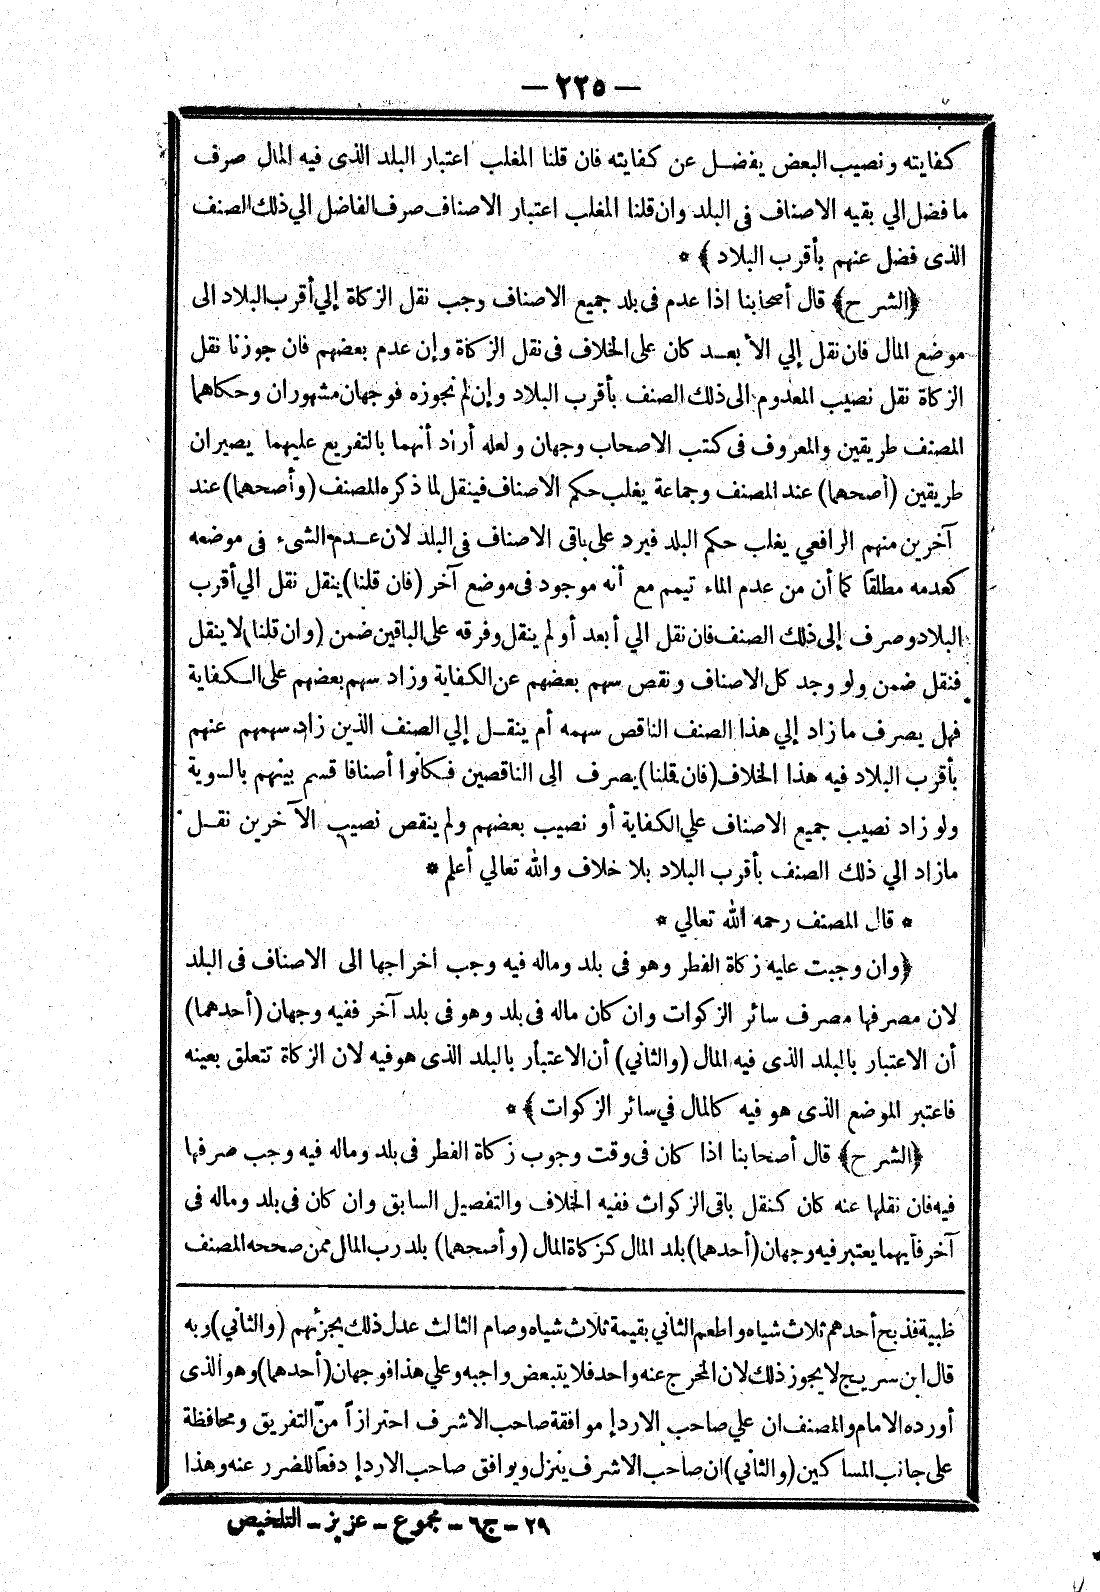 — ٢٢٥ —
كفايته ونصيب البعض يفضل عن كفايته فان قلنا المغلب اعتبار البلد الذى فيه المال صرف
ما فضل الي بقيه الاصناف في البلد وان قلنا المغلب اعتبار الاصناف صرف الفاضل الي ذلك الصنف
الذى فضل عنهم بأقرب البلاد ﴾ *
﴿الشرح﴾ قال أصحابنا اذا عدم فى بلد جميع الاصناف وجب نقل الزكاة إلي أقرب البلاد الى
موضع المال فان نقل إلي الأ بعد كان على الخلاف فى نقل الزكاة وإن عدم بعضهم فان جوزنا نقل
الزكاة نقل نصيب المعدوم الى ذلك الصنف بأقرب البلاد وإن لم نجوزه فوجهان مشهوران وحكاهما
المصنف طريقين والمعروف فى كتب الاصحاب وجهان ولعله أراد أنهما بالتفريع عليهما يصيران
طريقين (أصحهما) عند المصنف وجماعة يغلب حكم الاصناف فينقل لما ذكره المصنف (وأصحهما) عند
آخرين منهم الرافعي يغلب حكم البلد فيرد على باقى الاصناف فى البلد لان عدم الشىء فى موضعه
كعدمه مطلقا كما أن من عدم الماء تيمم مع أنه موجود فى موضع آخر (فان قلنا) ينقل نقل الي أقرب
البلاد وصرف إلى ذلك الصنف فان نقل الي أبعد أو لم ينقل وفرقه على الباقين ضمن (وان قلنا) لا ينقل
فنقل ضمن ولو وجد كل الاصناف ونقص سهم بعضهم عن الكفاية وزاد سهم بعضهم على الكفاية
فهل يصرف ما زاد إلي هذا الصنف الناقص سهمه أم ينقل إلي الصنف الذين زاد سهمهم عنهم
بأقرب البلاد فيه هذا الخلاف (فان قلنا) يصرف الى الناقصين فكانوا أصنافا قسم بينهم بالسوية
ولو زاد نصيب جميع الاصناف علي الكفاية أو نصيب بعضهم ولم ينقص نصيب الآخرين نقل
مازاد الي ذلك الصنف بأقرب البلاد بلا خلاف والله تعالي أعلم *
* قال المصنف رحمه الله تعالي *
﴿وان وجبت عليه زكاة الفطر وهو فى بلد وماله فيه وجب أخراجها الى الاصناف فى البلد
لان مصرفها مصرف سائر الزكوات وان كان ماله فى بلد وهو فى بلد آخر ففيه وجهان (أحدهما)
أن الاعتبار بالبلد الذى فيه المال (والثاني) أن الاعتبار بالبلد الذى هو فيه لان الزكاة تتعلق بعينه
فاعتبر الموضع الذى هو فيه كالمال في سائر الزكوات﴾ *
﴿الشرح﴾ قال أصحابنا اذا كان فى وقت وجوب زكاة الفطر فى بلد وماله فيه وجب صرفها
فيه فان نقلها عنه كان كنقل باقى الزكوات ففيه الخلاف والتفصيل السابق وان كان فى بلد وماله فى
آخر فأيهما يعتبر فيه وجهان (أحدهما) بلد المال كزكاة المال (وأصحهما) بلد رب المال ممن صححه المصنف
ظبية فذبح أحدهم ثلاث شياه واطعم الثاني بقيمة ثلاث شياه وصام الثالث عدل ذلك يجزئهم (والثاني) وبه
قال ابن سريج لا يجوز ذلك لان المخرج عنه واحد فلا يتبعض واجبه وعلي هذا فوجهان (أحدهما) وهو الذى
أورده الامام والمصنف ان علي صاحب الاردإ موافقة صاحب الاشرف احترازاً من التفريق ومحافظة
على جانب المساكين (والثاني) ان صاحب الاشرف ينزل ويوافق صاحب الاردإ دفعاً للضرر عنه وهذا
٢٩ - ج٦ - مجموع - عزيز - التلخيص